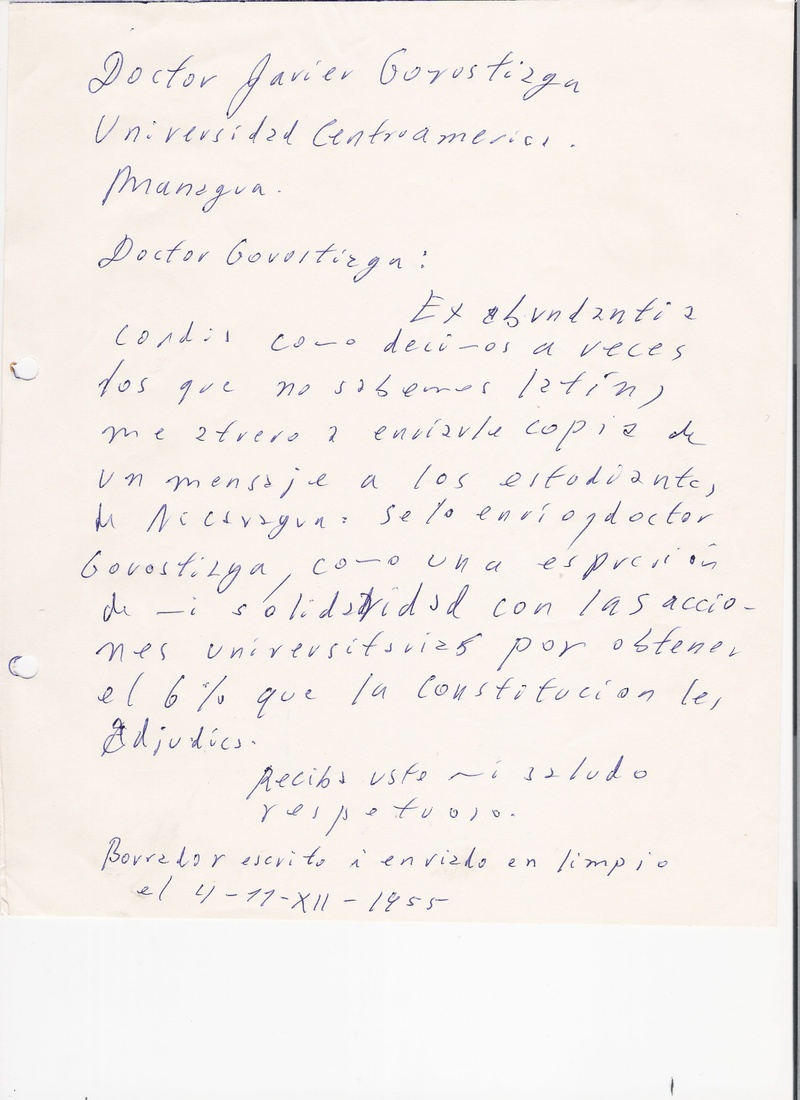 Doctor Javier Gorostizga
Universidad Centroamerica.
Managua.
Doctor Gorostizga:
Ex abundantia
cordis como decimos a veces
los que no sabemos latín,
me atrevo a enviarle copia de
un mensaje a los estudiantes
de Nicaragua. Se lo envio, doctor
Gorostizga, como una espresión
de mi solidaridad con las accio-
nes universitarias por obtener
el 6% que la Constitucion les
adjudica.
Reciba uste mi saludo
respetuoso.
Borrador escrito i enviado en limpio
el 4-11-XII-1955